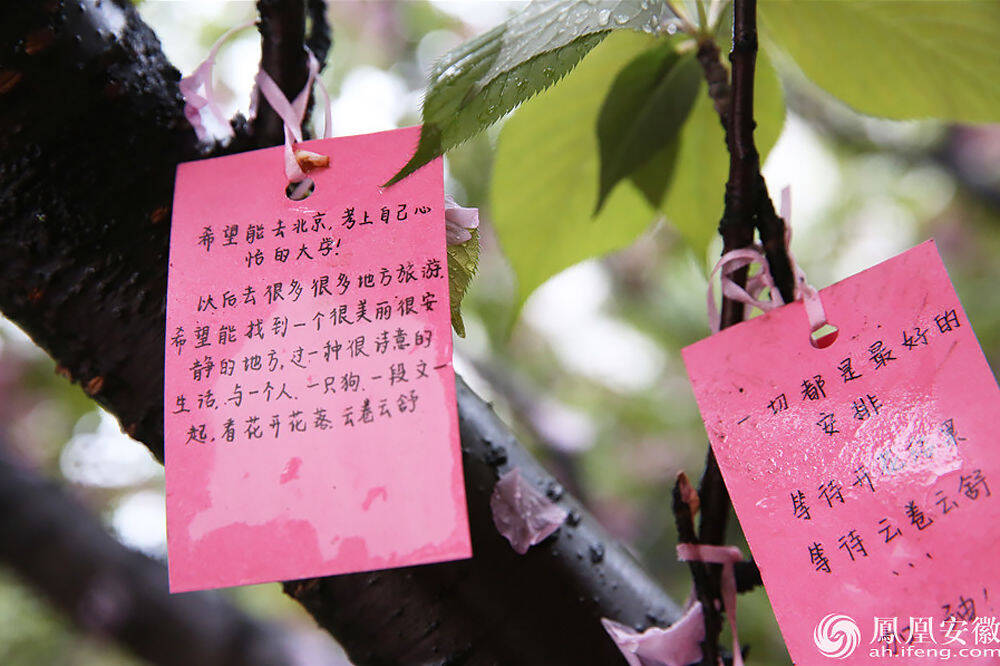 希望能去北京,考上自己心
怡的大学!
以后去很多很多地方旅游
希望能找到一个很美丽很安
静的地方,过一种很诗意的
生活,与一个人、一只狗、一段文一
起,看花开花落、云卷云舒
一切都是最好的
安排
等待开花结果
等待云卷云舒
...
鳳凰安徽
ah.ifeng.com